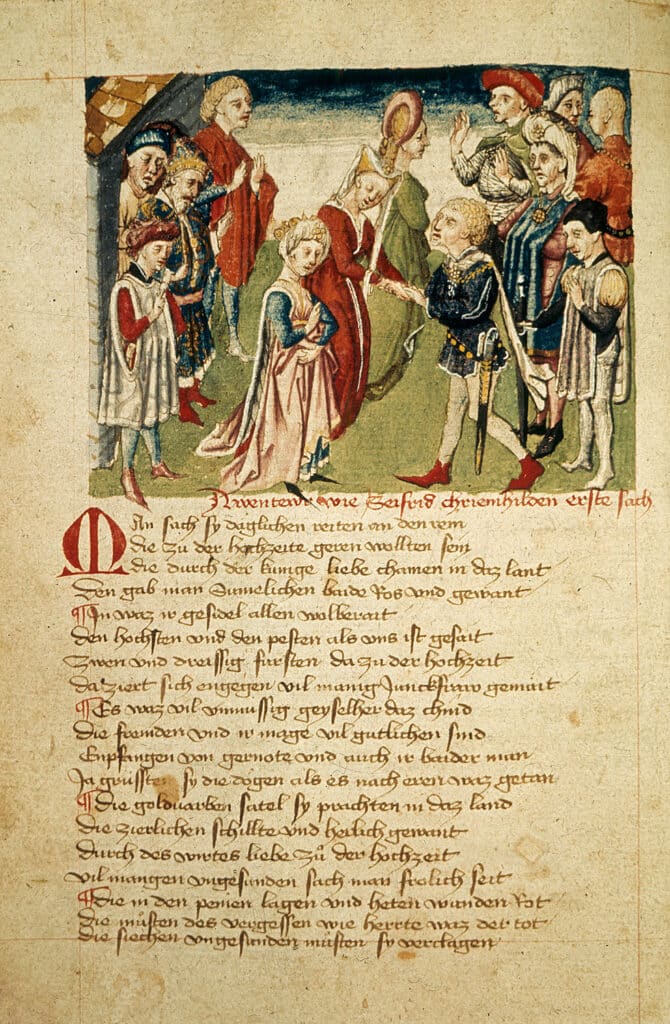 Awenteur wie Seifrid chriemhilden erste sach
Man sach sy däglichen reiten an den rein
die zu der hochzeite geren wollten sein
die durch der künige liebe chamen in daz lant
Den gab man Sümelichen baide Ros und gewant
In waz ir gesidel allen wolberait
den hochsten und den pesten als uns ist gesait
Zwen und dreissig fürsten da zu der hochzeit
da ziert sich engegen vil manig Junckfraw gemait
Es waz vil unmüssig geyselher daz chind
die fremden und ir mage vil gutlichen sind
Enpfangen von gernote und auch ir baider man
Ja grüssten sy die degen als es nach eren waz getan
die goldvarben satel sy prachten in daz land
die zierlichen schillte und herlich gewant
durch des wirtes liebe zu der hochzeit
vil mangen ungesunden sach man frolich seit
die in den petten lagen und heten wunden Not
die müsten des vergessen wie herrte waz der tot
die siechen ungesunden müsten sy verclagen